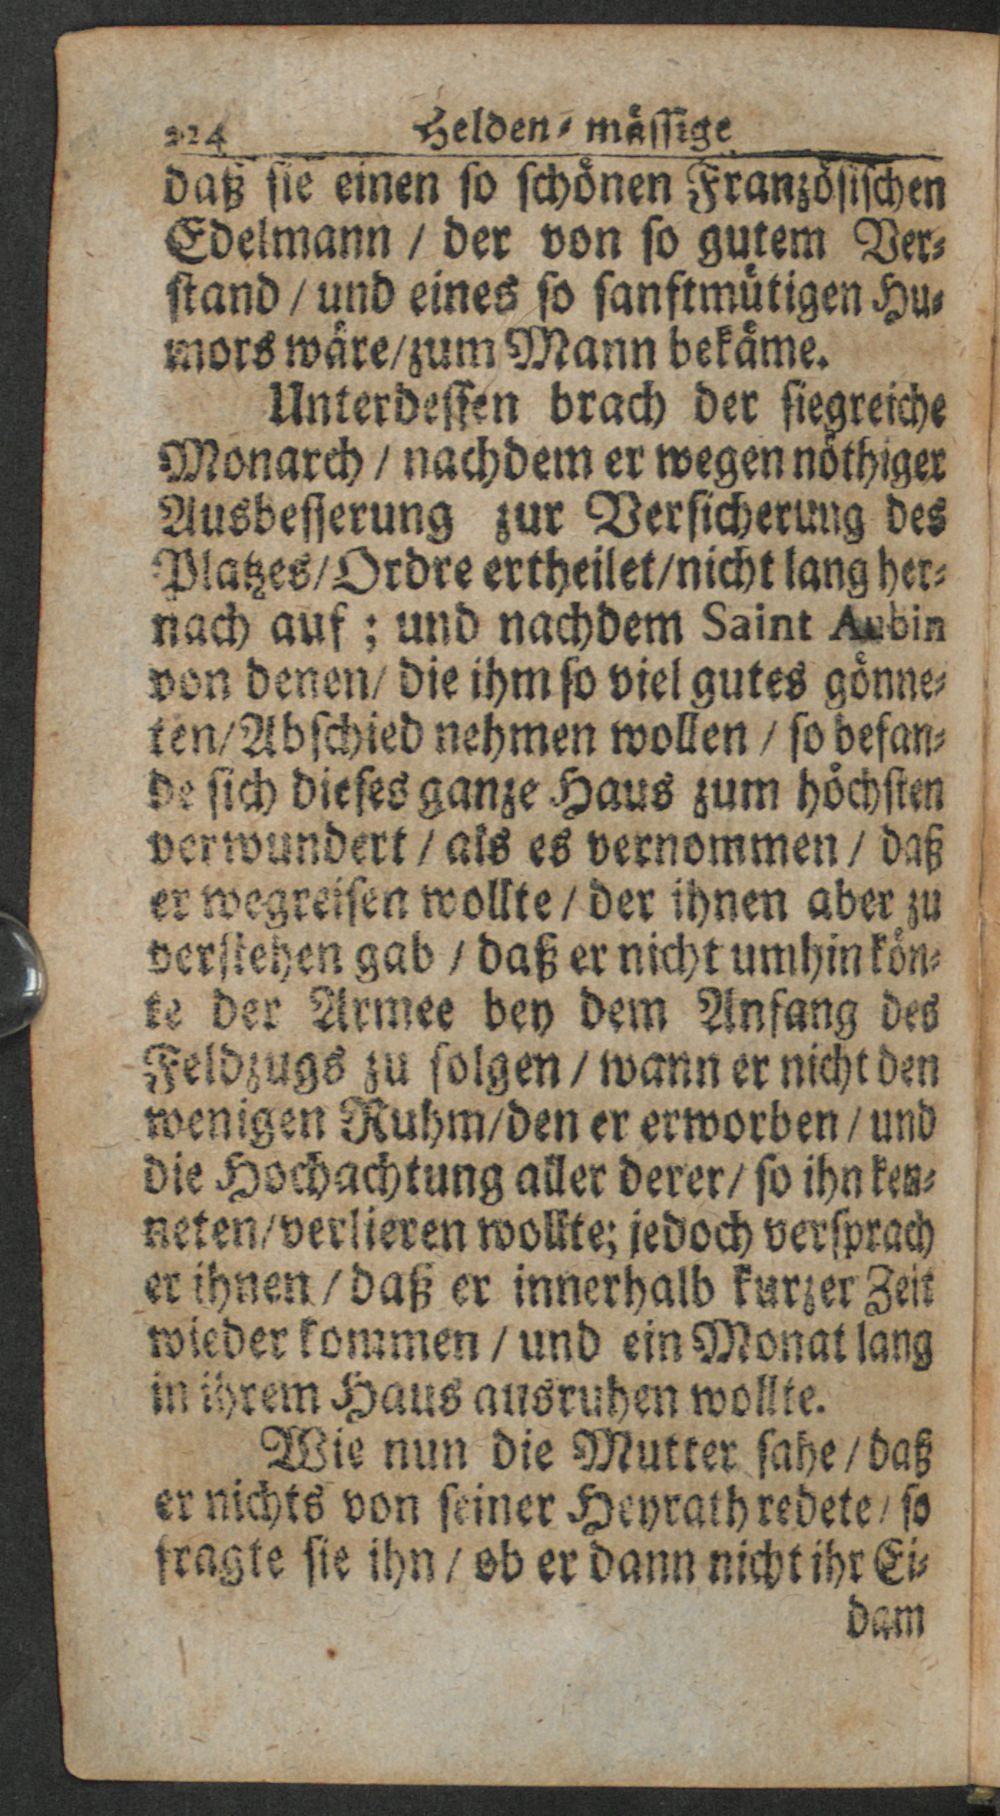 224 Helden-mässige
daß sie einen so schönen Französischen
Edelmann / der von so gutem Ver-
stand / und eines so sanftmütigen Hu-
mors wäre/zum Mann bekäme.
Unterdessen brach der siegreiche
Monarch / nachdem er wegen nöthiger
Ausbesserung zur Versicherung des
Platzes/Ordre ertheilet/nicht lang her-
nach auf ; und nachdem Saint Aubin
von denen/ die ihm so viel gutes gönne-
ten/Abschied nehmen wollen / so befan-
de sich dieses ganze Haus zum höchsten
verwundert / als es vernommen / daß
er wegreisen wollte / der ihnen aber zu
verstehen gab / daß er nicht umhin kön-
te der Armee bey dem Anfang des
Feldzugs zu folgen / wann er nicht den
wenigen Ruhm/den er erworben / und
die Hochachtung aller derer/ so ihn ken-
neten/verlieren wollte; jedoch versprach
er ihnen / daß er innerhalb kurzer Zeit
wieder kommen / und ein Monat lang
in ihrem Haus ausruhen wollte.
Wie nun die Mutter sahe / daß
er nichts von seiner Heyrath redete/ so
fragte sie ihn / ob er dann nicht ihr Ei-
dam